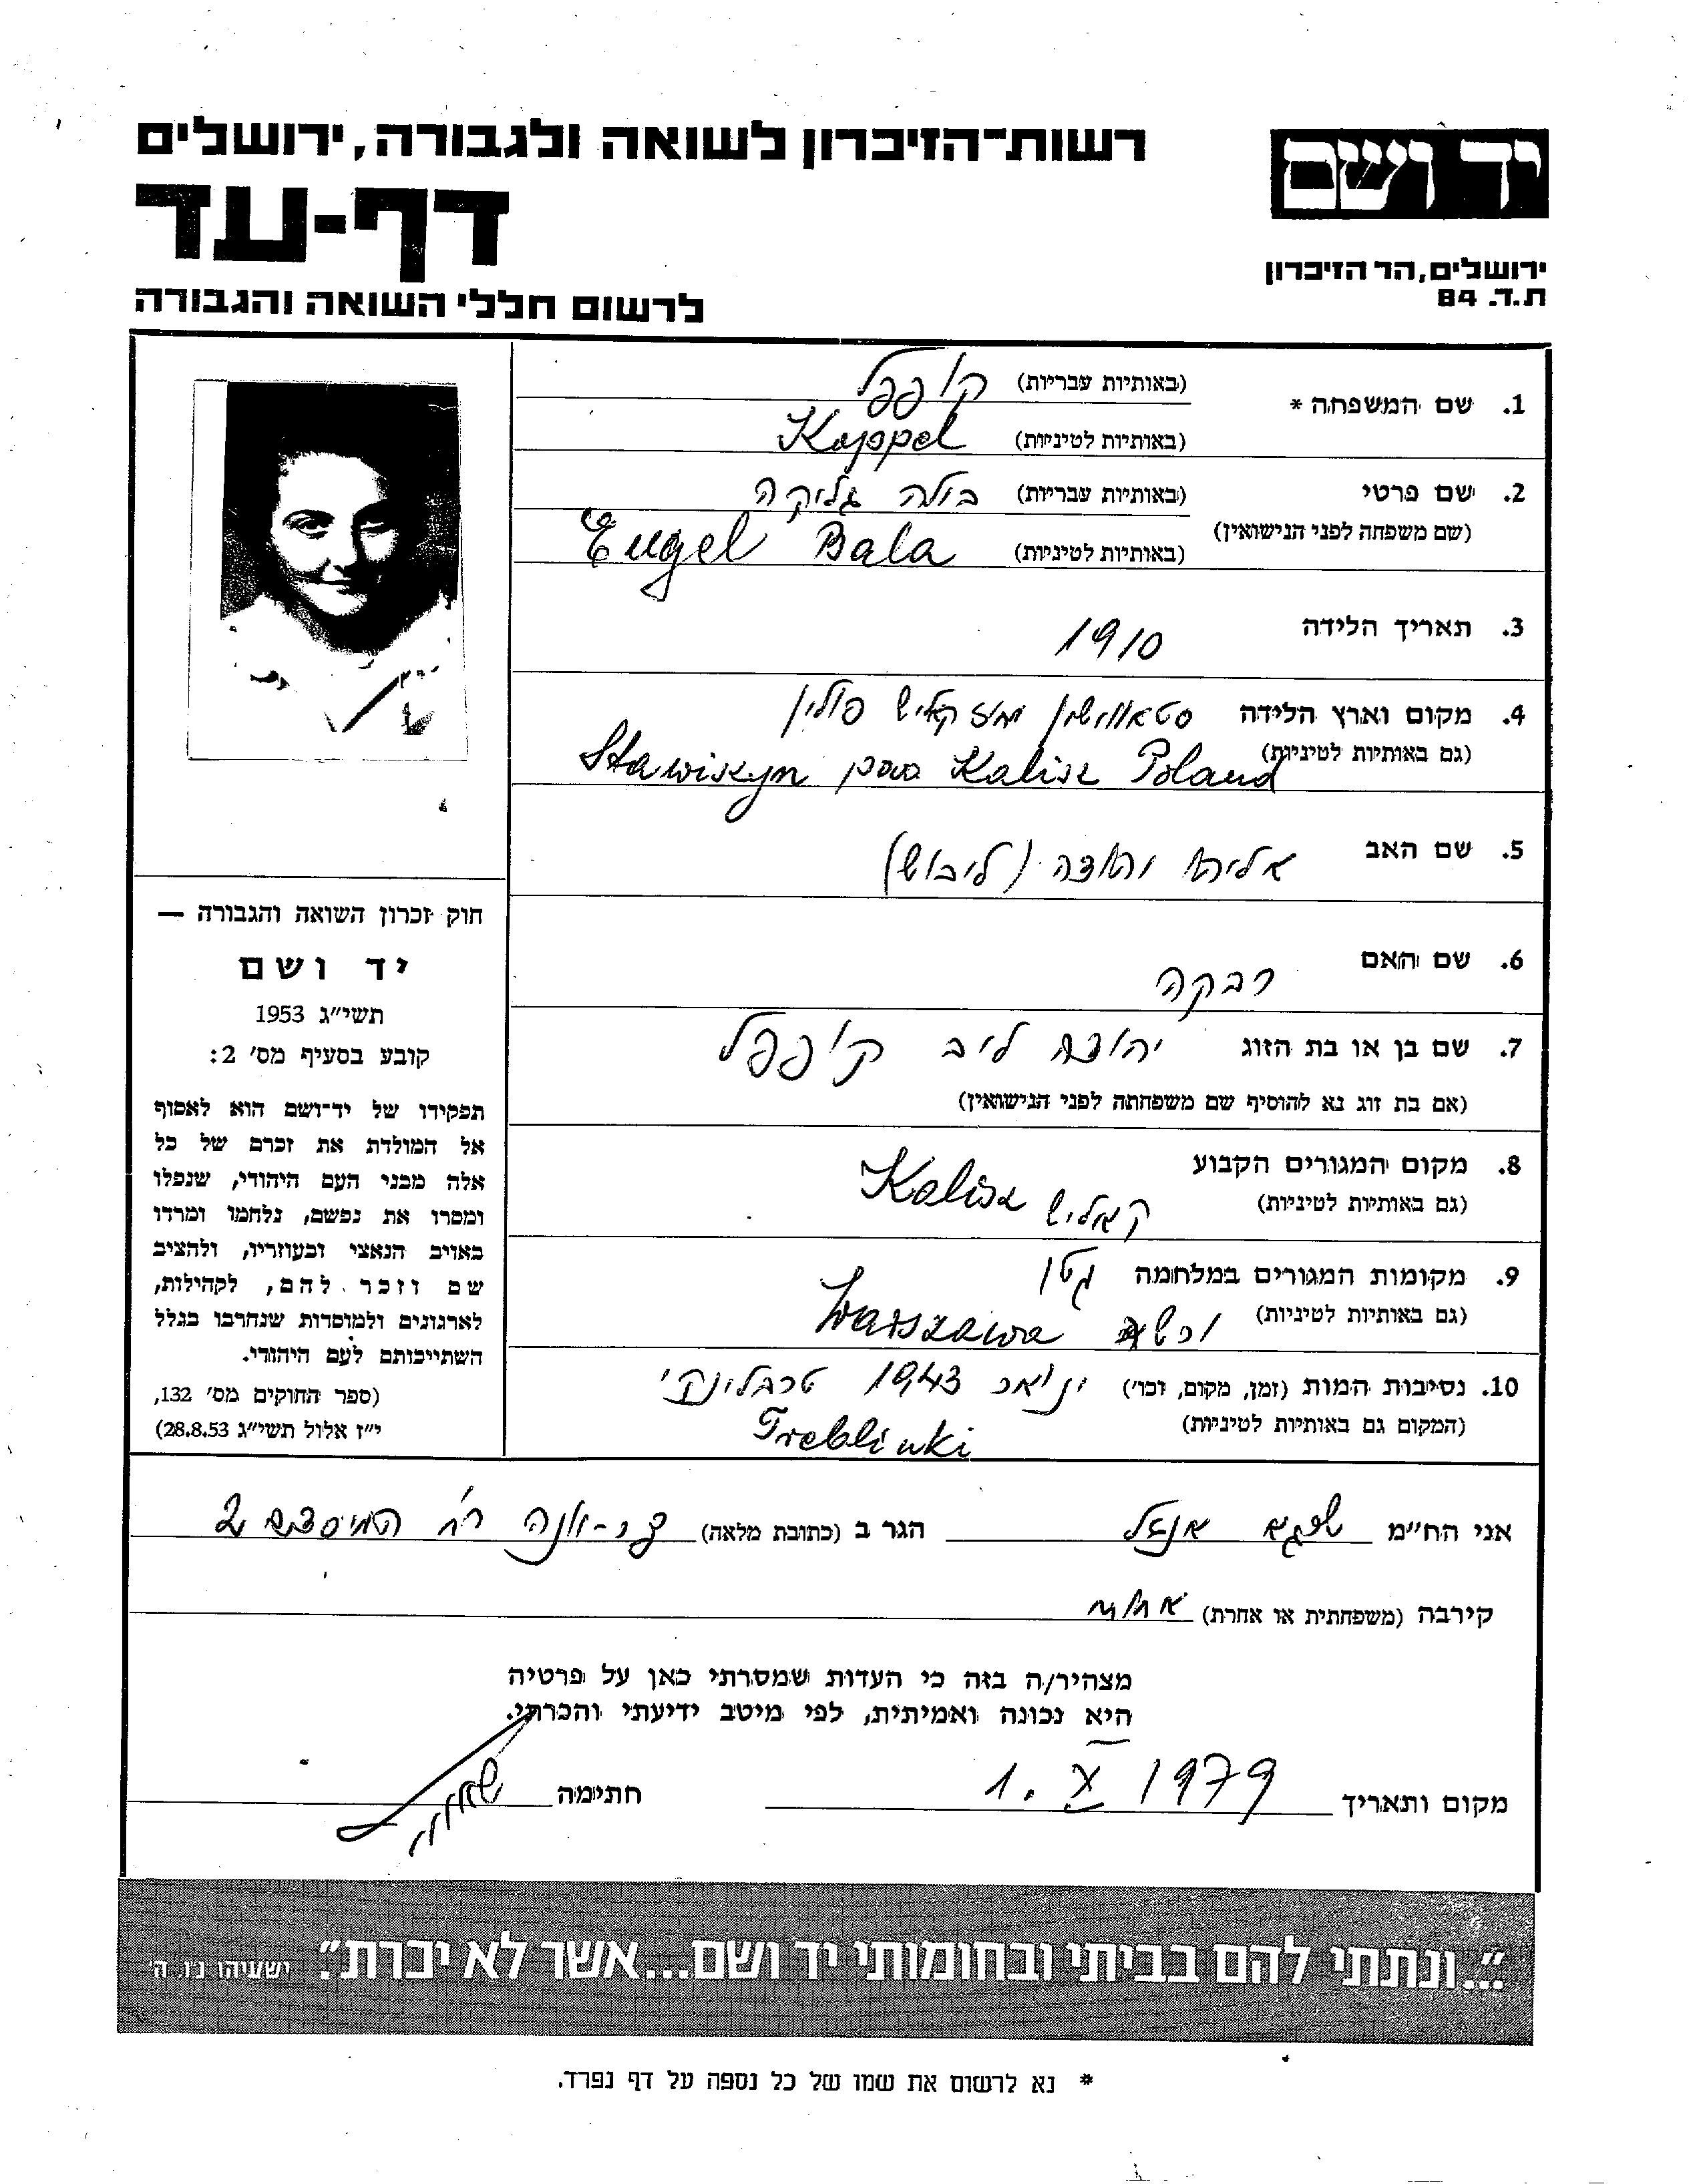 יד ושם
רשות-הזיכרון לשואה ולגבורה, ירושלים
דף-עד
לרשום חללי השואה והגבורה
ירושלים, הר הזיכרון
ת.ד. 84
1. שם המשפחה * (באותיות עבריות) קופפל
(באותיות לטיניות) Koppel
2. שם פרטי (באותיות עבריות) בולה
(שם משפחה לפני הנישואין) (באותיות לטיניות) Engel Bala
3. תאריך הלידה 1910
4. מקום וארץ הלידה קאליש פולין
(גם באותיות לטיניות) Stawiszyn pow Kalisz Poland
5. שם האב אליהו יהודה (ליבוש)
6. שם האם רבקה
7. שם בן או בת הזוג יהודה ליב קופפל
(אם בת זוג נא להוסיף שם משפחתה לפני הנישואין)
8. מקום המגורים הקבוע
(גם באותיות לטיניות) קאליש Kalisz
9. מקומות המגורים במלחמה גטו
(גם באותיות לטיניות) ורשה Warszawa
10. נסיבות המות (זמן, מקום, וכו') ינואר 1943 טרבלינקי
(המקום גם באותיות לטיניות) Treblinki
חוק זכרון השואה והגבורה —
יד ושם
תשי"ג 1953
קובע בסעיף מס' 2:
תפקידו של יד-ושם הוא לאסוף
אל המולדת את זכרם של כל
אלה מבני העם היהודי, שנפלו
ומסרו את נפשם, נלחמו ומרדו
באויב הנאצי ובעוזריו, ולהציב
שם וזכר להם, לקהילות,
לארגונים ולמוסדות שנחרבו בגלל
השתייכותם לעם היהודי.
(ספר החוקים מס' 132,
י"ז אלול תשי"ג 28.8.53)
אני הח"מ שרגא אנגל הגר ב (כתובת מלאה) רח' המיסדים 2
קירבה (משפחתית או אחרת)
מצהיר/ה בזה כי העדות שמסרתי כאן על פרטיה
היא נכונה ואמיתית, לפי מיטב ידיעתי והכרתי.
מקום ותאריך 1. X 1979 חתימה
"...ונתתי להם בביתי ובחומותי יד ושם...אשר לא יכרת". ישעיהו נ"ו, ה'
* נא לרשום את שמו של כל נספה על דף נפרד.